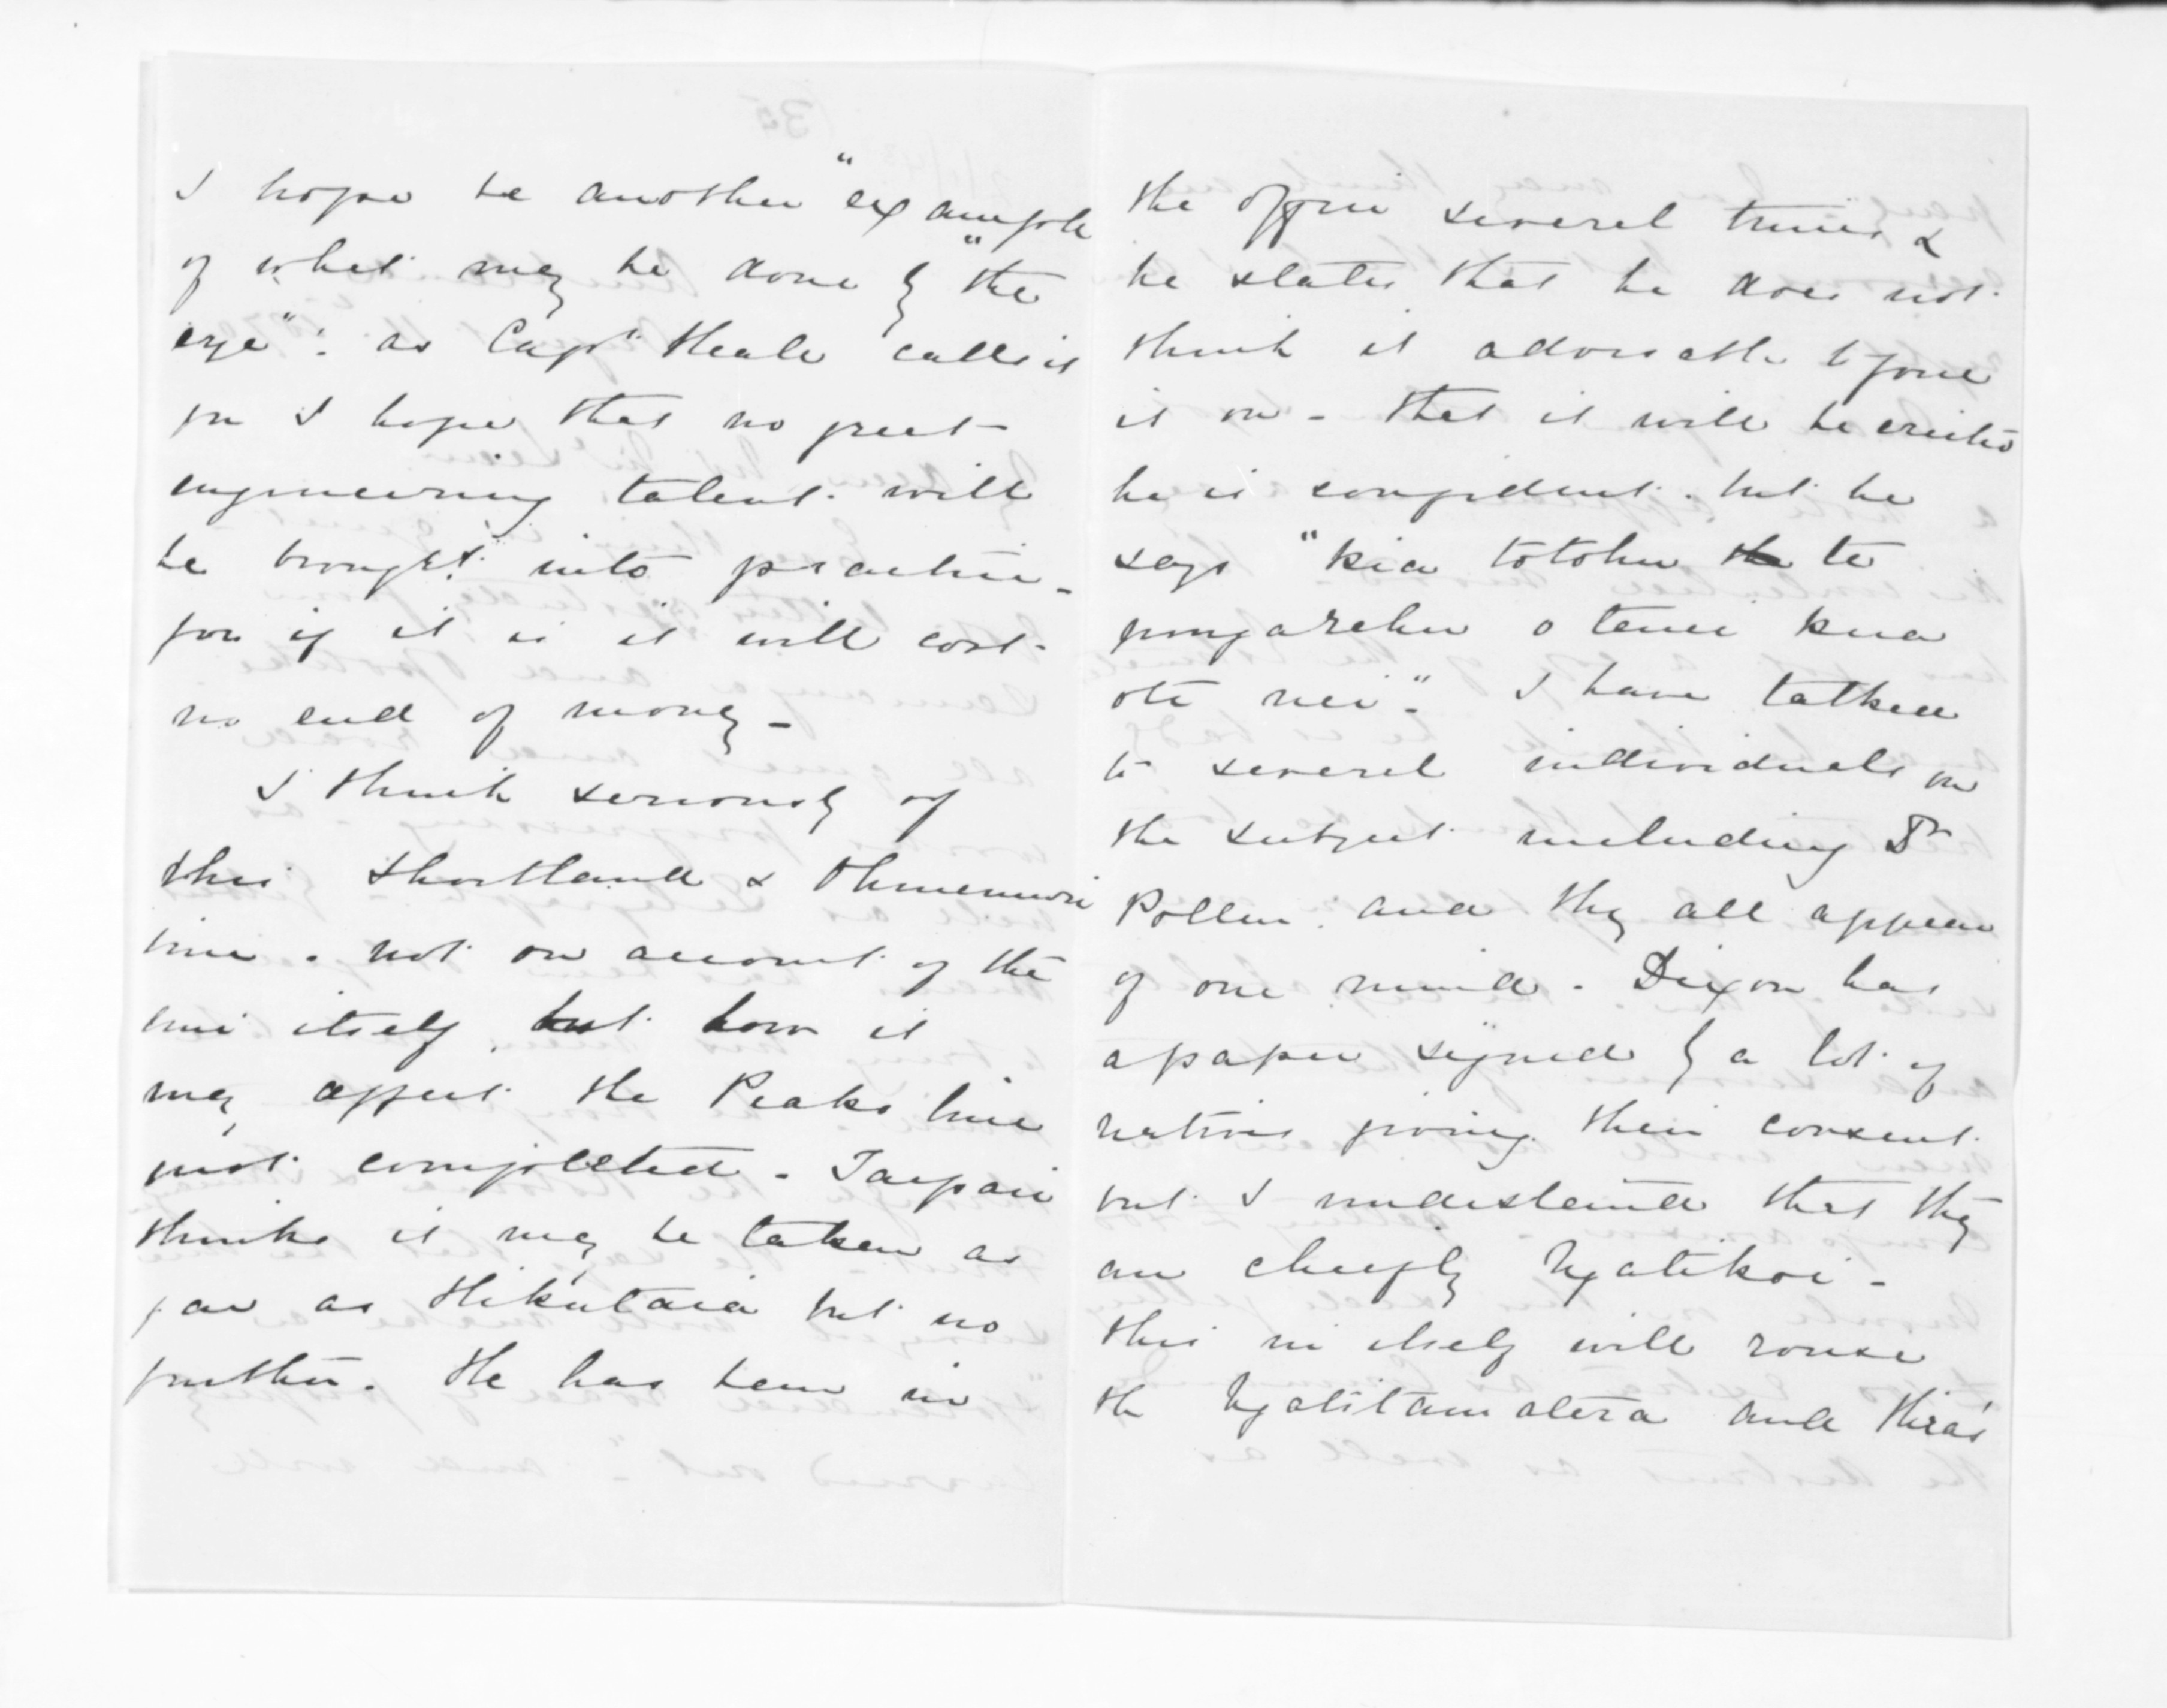 I hope be another "example
of what may be done by "the
eye": as Capn Heale calls it
for I hope that no great
engineering talent will
be brought into practice -
for if it is it will cost
no end of money -
I think seriously of
this Shortland & Ohinemuri
line. not on account of the
line itself, but how it
may affect the Piako line
just completed - Taipari
thinks it may be taken as
far as Hikutaia but no
further. He has been in
the office several times &
he states that he does not
think it advisable to force
it on - that it will be erected
he is confident. but he
says "kia totohu te
pungarehu o tenei kua
oti nei". I have talked
to several individuals on
the subject including Dr
Pollen. and they all appear
of one mind. Dixon has
a paper signed by a lot of
natives giving their consent
but I understand that they
are chiefly Ngatikoi -
this in itself will rouse
the Ngatitamatera and Hira's